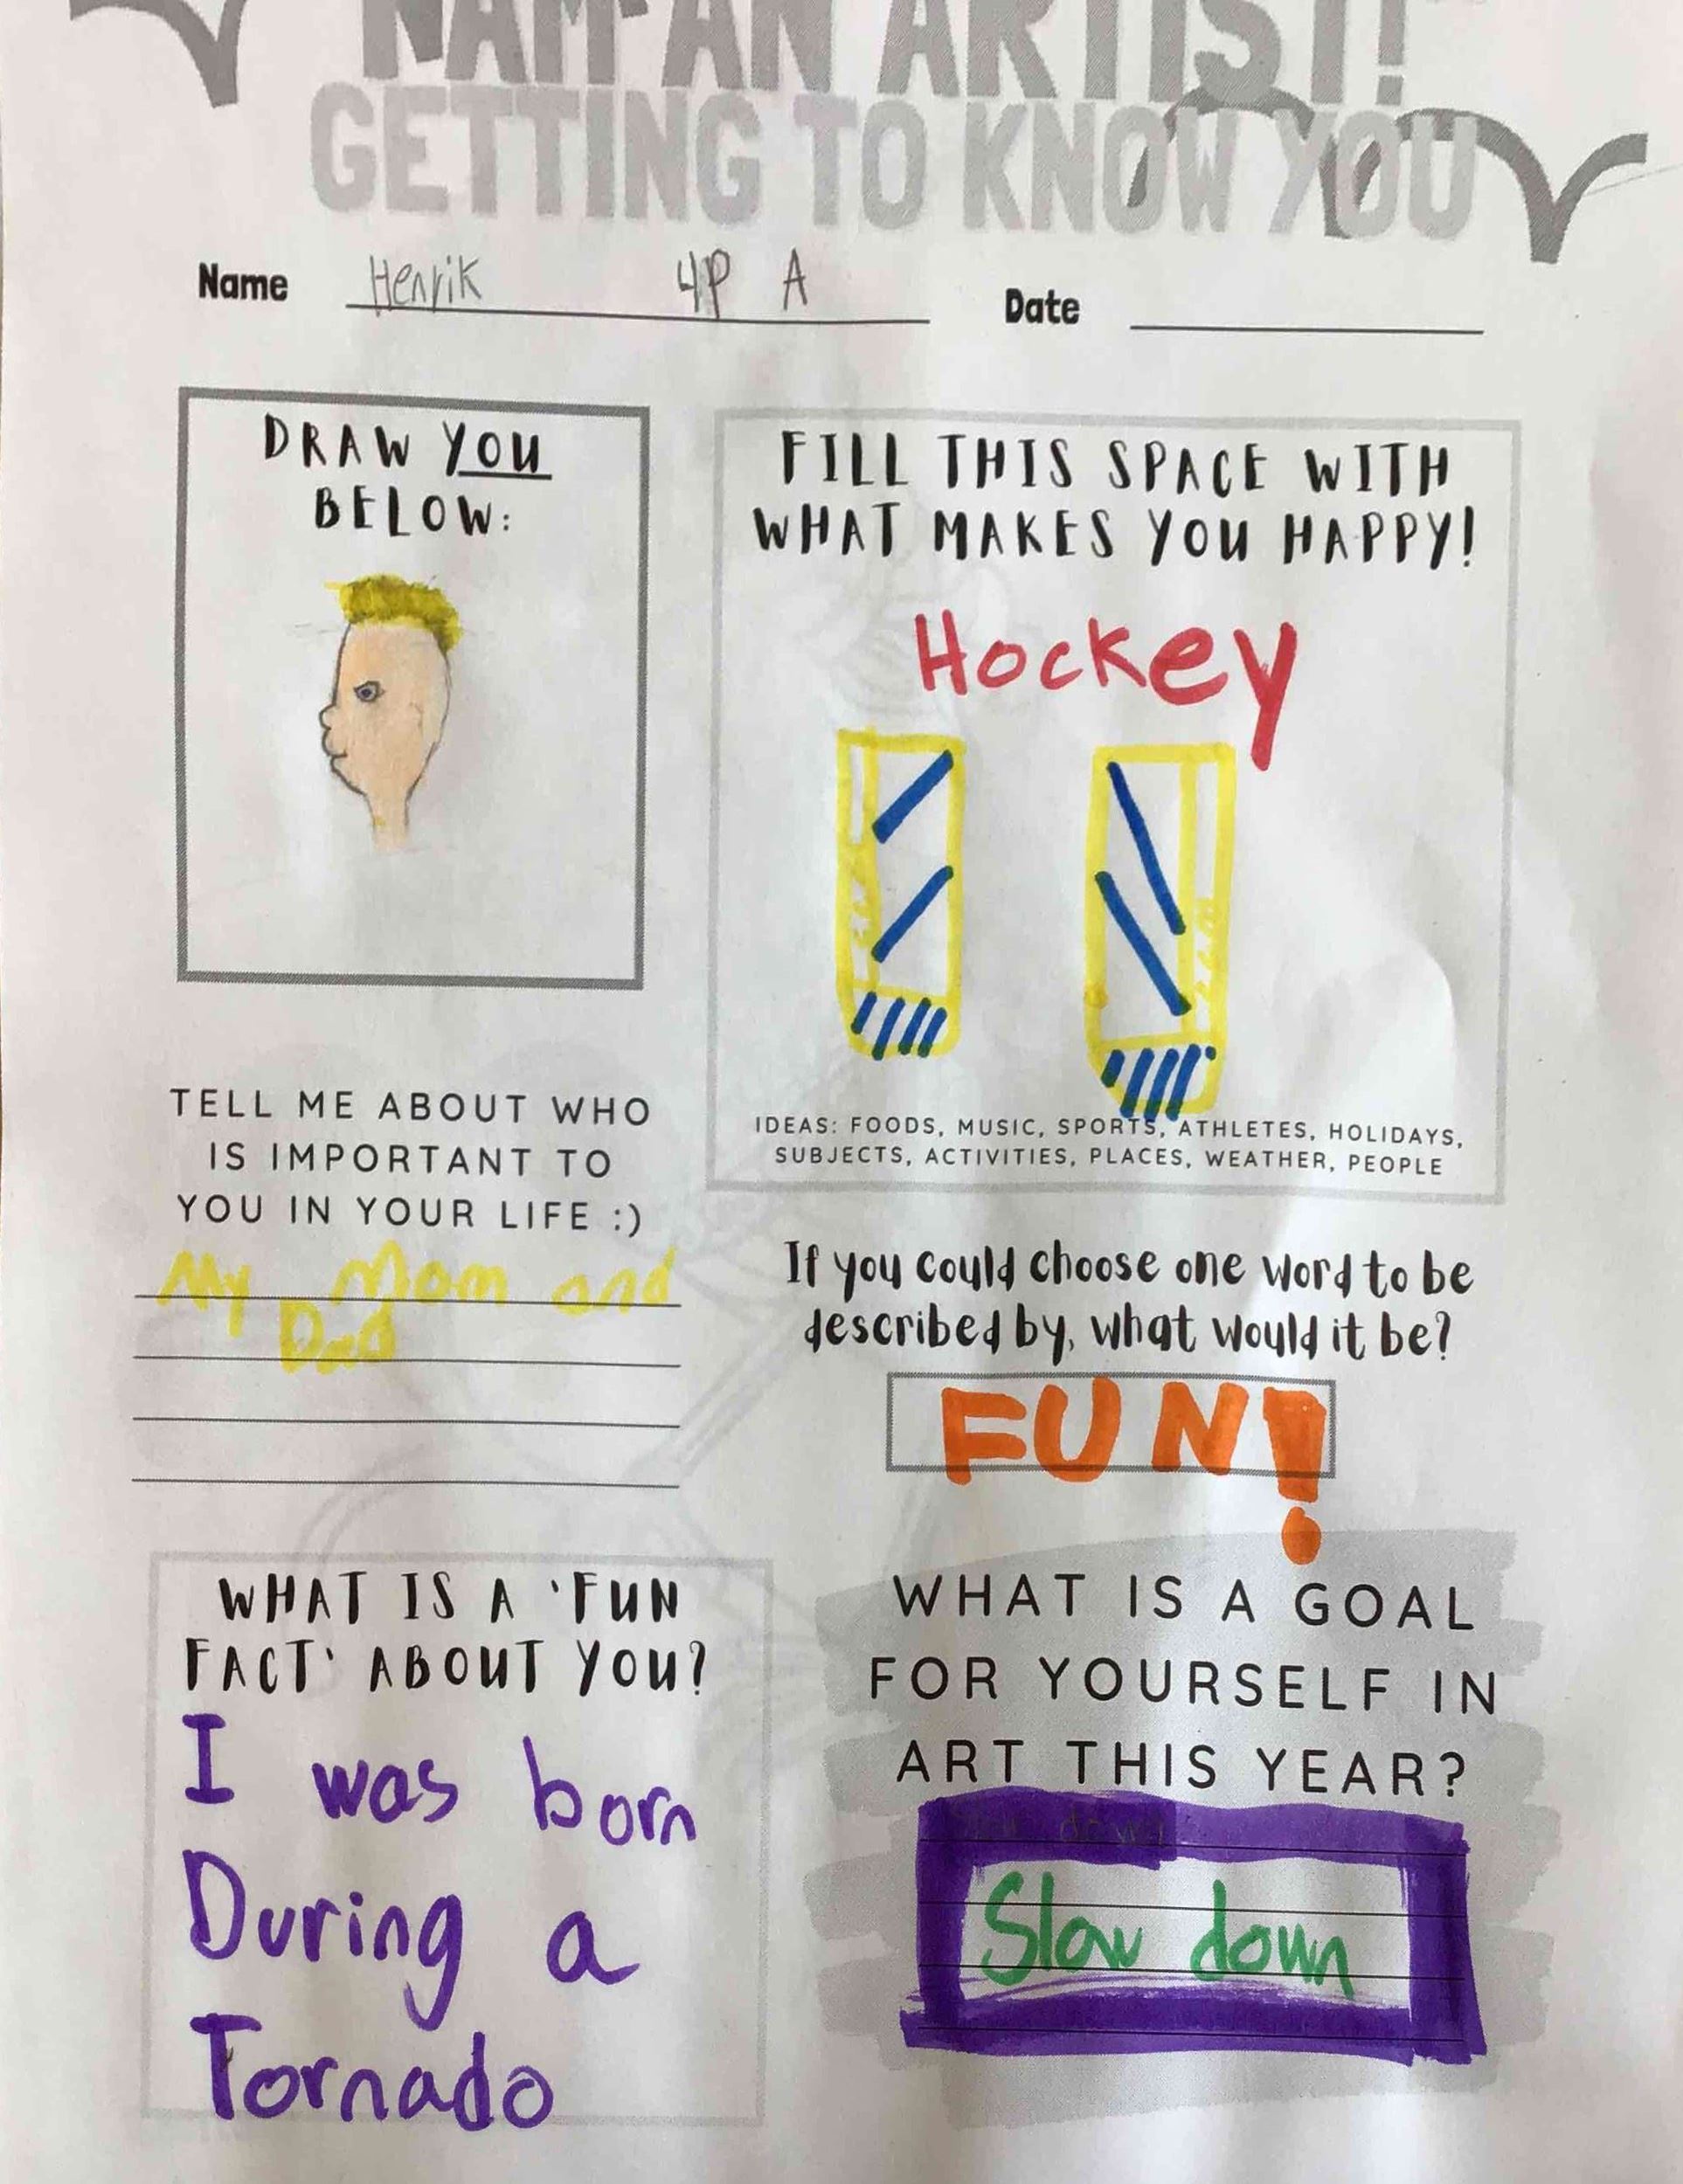 I AM AN ARTIST!
GETTING TO KNOW YOU
Name Henrik 4P A Date
DRAW YOU
BELOW:
FILL THIS SPACE WITH
WHAT MAKES YOU HAPPY!
Hockey
IDEAS: FOODS, MUSIC, SPORTS, ATHLETES, HOLIDAYS,
SUBJECTS, ACTIVITIES, PLACES, WEATHER, PEOPLE
TELL ME ABOUT WHO
IS IMPORTANT TO
YOU IN YOUR LIFE :)
My Mom and
Dad
If you could choose one word to be
described by, what would it be?
FUN!
WHAT IS A 'FUN
FACT' ABOUT YOU?
I was born
During a
Tornado
WHAT IS A GOAL
FOR YOURSELF IN
ART THIS YEAR?
Slow down
Slow down